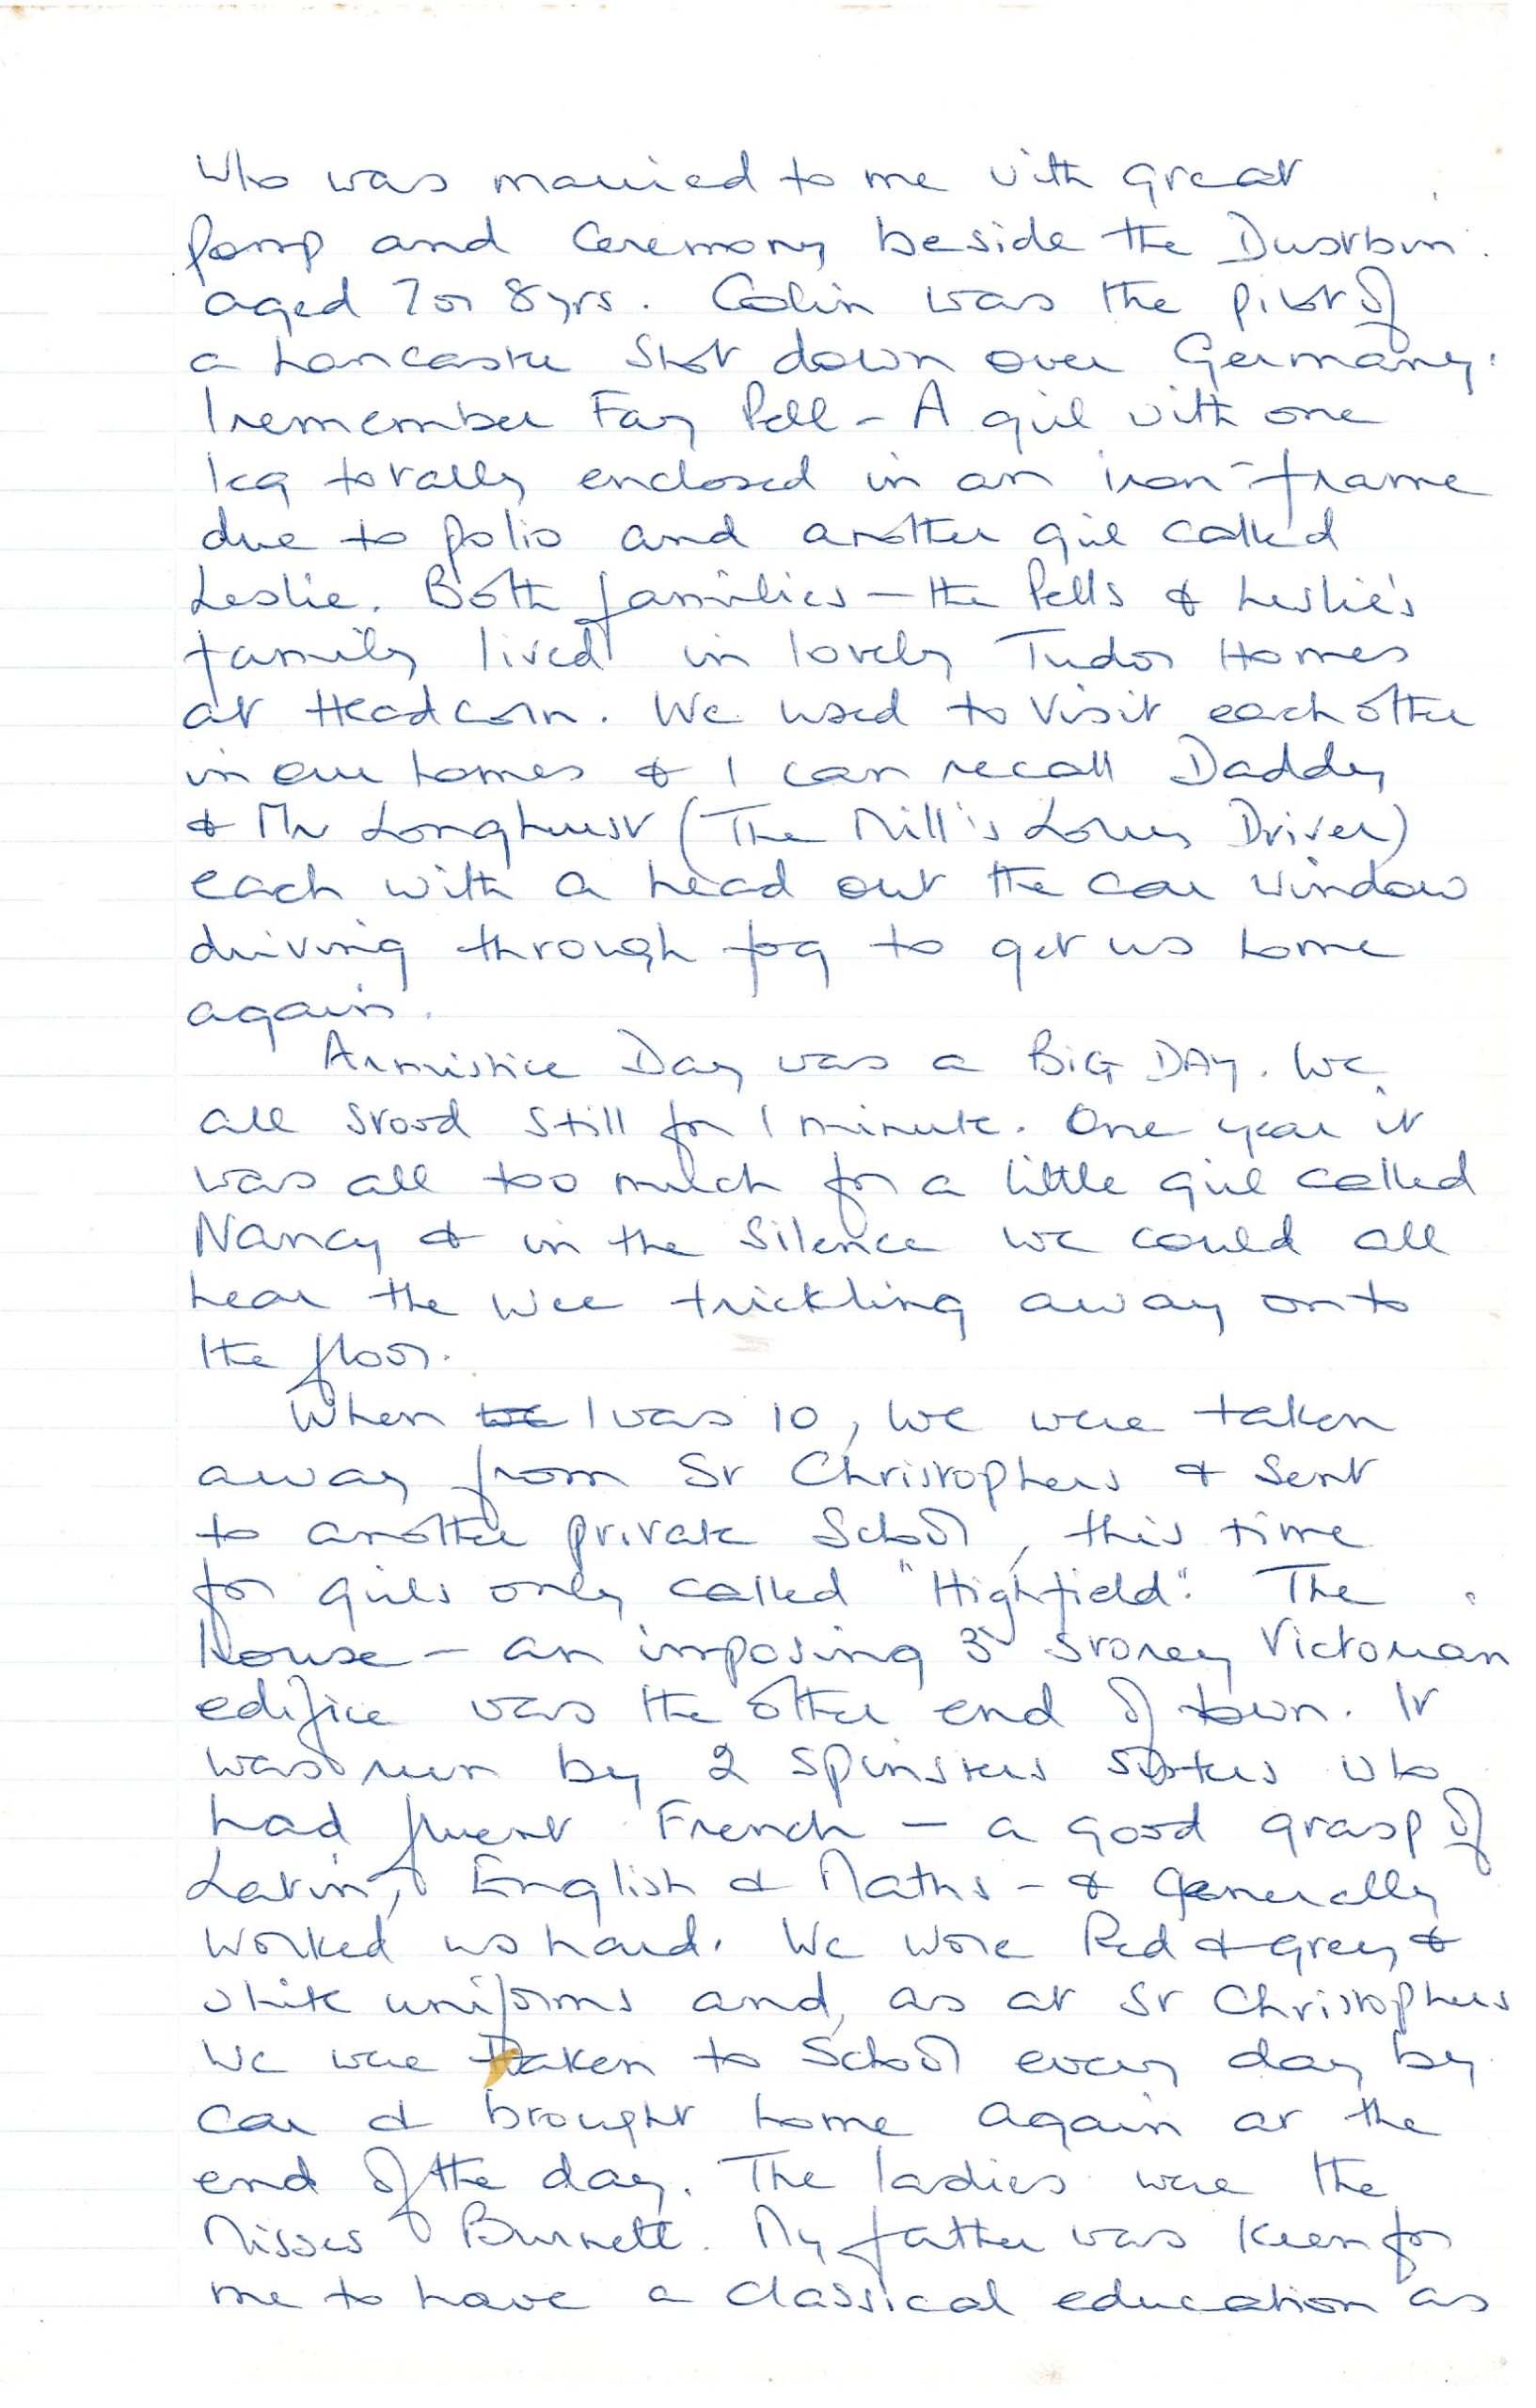 who was married to me with great
pomp and ceremony beside the Dustbin.
aged 7 or 8 yrs. Colin was the pilot of
a Lancaster shot down over Germany.
I remember Fay Pell - A girl with one
leg totally enclosed in an iron-frame
due to polio and another girl called
Leslie. Both families - the Pells & Leslie's
family lived in lovely Tudor Homes
at Headcorn. We used to visit each other
in our homes & I can recall Daddy
& Mr Longhurst (The Mill's Lorry Driver)
each with a head out the car window
driving through fog to get us home
again.
Armistice Day was a BIG DAY. We
all stood still for 1 minute. One year it
was all too much for a little girl called
Nancy & in the silence we could all
hear the wee trickling away onto
the floor.
When we I was 10, we were taken
away from St Christophers & sent
to another private School, this time
for girls only called "Highfield". The
house - an imposing 3 storey Victorian
edifice was the other end of town. It
was run by 2 spinsters sisters who
had fluent French - a good grasp of
Latin, English & Maths - & generally
worked us hard. We wore Red & grey &
white uniforms and, as at St Christophers
we were taken to School every day by
car & brought home again at the
end of the day. The ladies were the
Misses Burnett. My father was keen for
me to have a classical education as